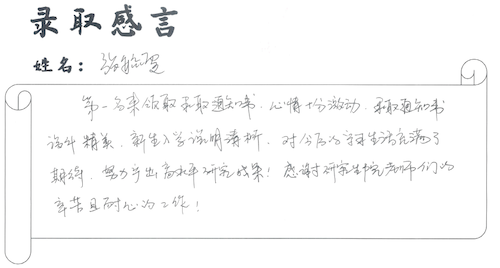 录取感言
姓名：张
第一名来领取录取通知书，心情十分激动，录取通知书
设计精美，新生入学说明清晰，对今后的学习生活充满了
期待，努力产出高水平研究成果！感谢研究生院老师们的
辛苦且耐心的工作！